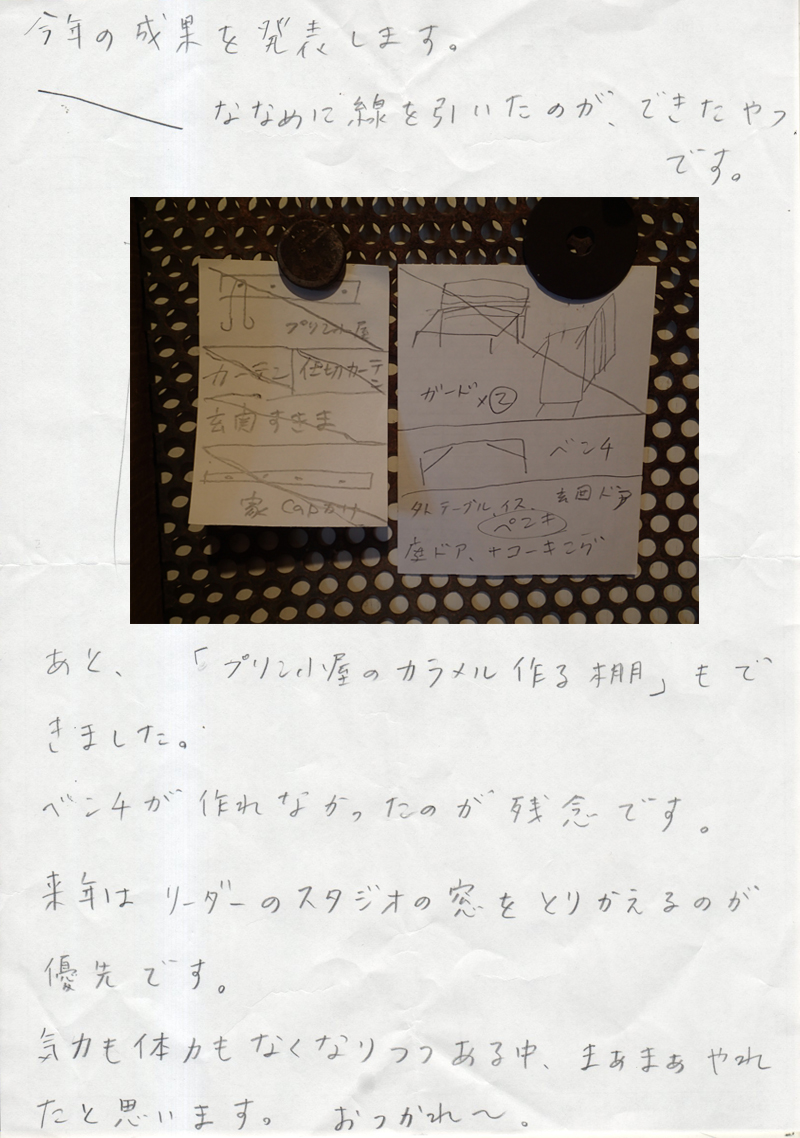 今年の成果を発表します。
ななめに線を引いたのが、できたやつ
です。
プリン小屋
カーテン
仕切カーテン
玄関すきま
家 Capかけ
ガード×②
ベンチ
外テーブル、イス、玄関ドア
ペンキ
座ドア、+コーキング
あと、「プリン小屋のカラメル作る棚」もで
きました。
ベンチが作れなかったのが残念です。
来年はリーダーのスタジオの窓をとりかえるのが
優先です。
気力も体力もなくなりつつある中、まぁまぁやれ
たと思います。 おつかれ〜。